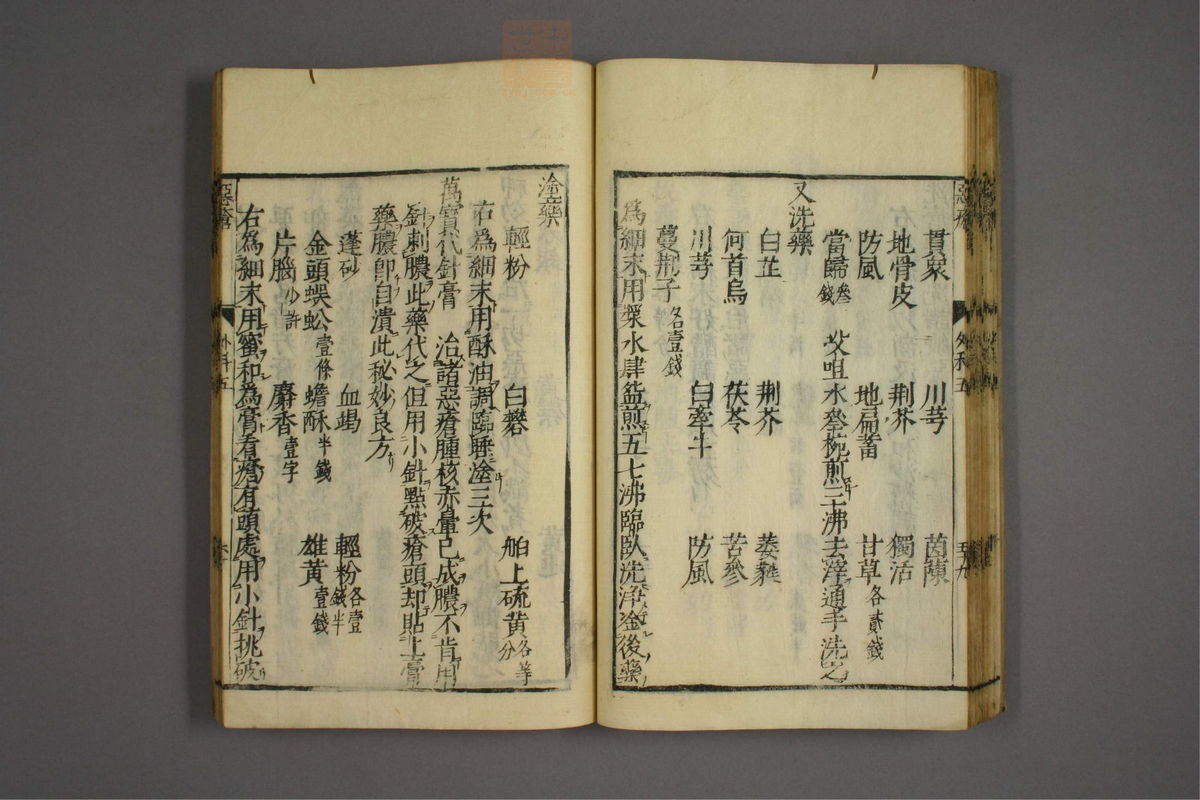 惡瘡 外科五 五十九
貫衆 川芎 茵蔯
地骨皮 荆芥 獨活
防風 地扁蓄 甘草各貳錢
當歸叁錢 㕮咀水叁椀煎三沸去滓通手洗之
又洗藥
白芷 荆芥 萎蕤
何首烏 茯苓 苦參
川芎 白牽牛 防風
蔓荆子各壹錢
爲細末用漿水肆盌煎五七沸臨臥洗淨塗後藥
塗藥
輕粉 白礬 舶上硫黄各等分
右爲細末用酥油調臨睡塗三次
萬寳代針膏 治諸惡瘡腫核赤暈已成膿不肯用
針刺膿此藥代之但用小針點破瘡頭却貼上膏
藥膿卽自潰此秘妙良方
蓬砂 血竭 輕粉各壹錢半
金頭蜈蚣壹條 蟾酥半錢 雄黄壹錢
片腦少許 麝香壹字
右爲細末用蜜和爲膏看瘡有頭處用小針挑破
惡瘡 外科五 六十